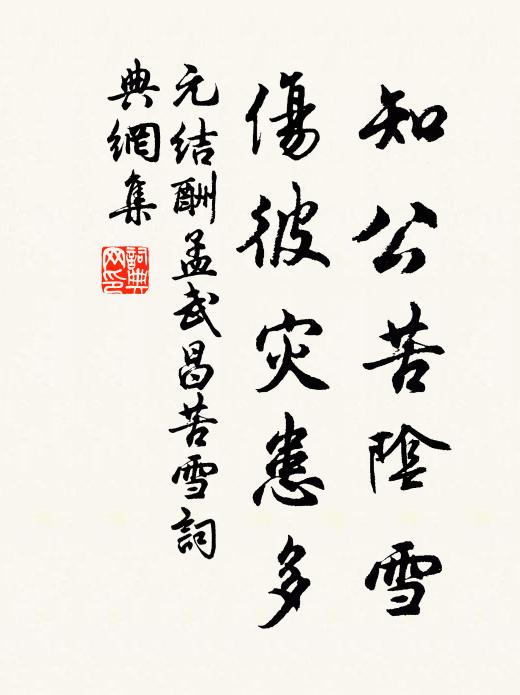 知公苦陰雪
傷彼灾患多
元结酬孟武昌苦雪詞
典網集
詞典
网印